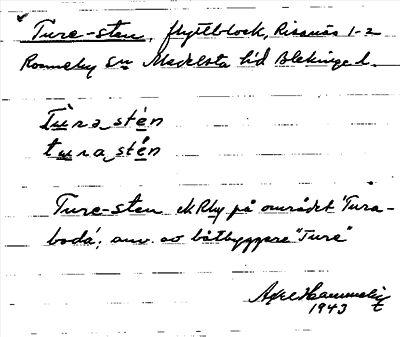 Ture-sten, flyttblock, Rissnäs 1-2
Ronneby sn Medelsta hd Blekinge l.
Tùra stén
tura stén
Ture-sten ek Rby på området "Tura-
boda", anv. av båtbyggare "Ture"
Axel
1943